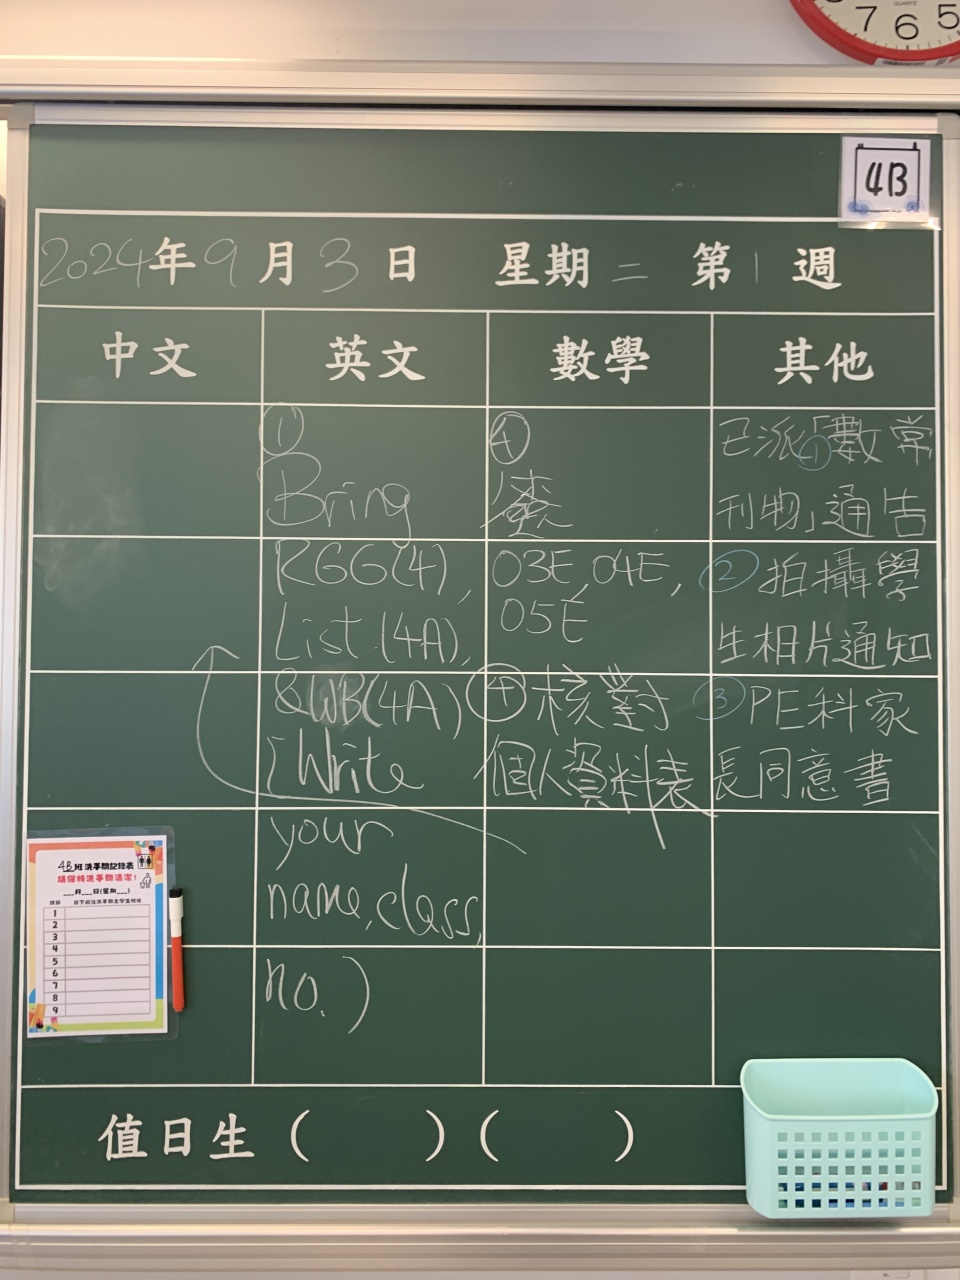 7 6 5
4B
2024年9月3日 星期二 第1週
中文 英文 數學 其他
①
Bring
RGG(4),
List.(4A),
&WB(4A)
(Write
your
name,class,
no.)
④
03E,04E,
05E
④核對
個人資料表
已派①「數常
刊物」通告
②拍攝學
生相片通知
③PE科家
長同意書
4B班洗手間記錄表
請保持洗手間清潔!
___月___日(星期___)
1
2
3
4
5
6
7
8
9
值日生( )( )